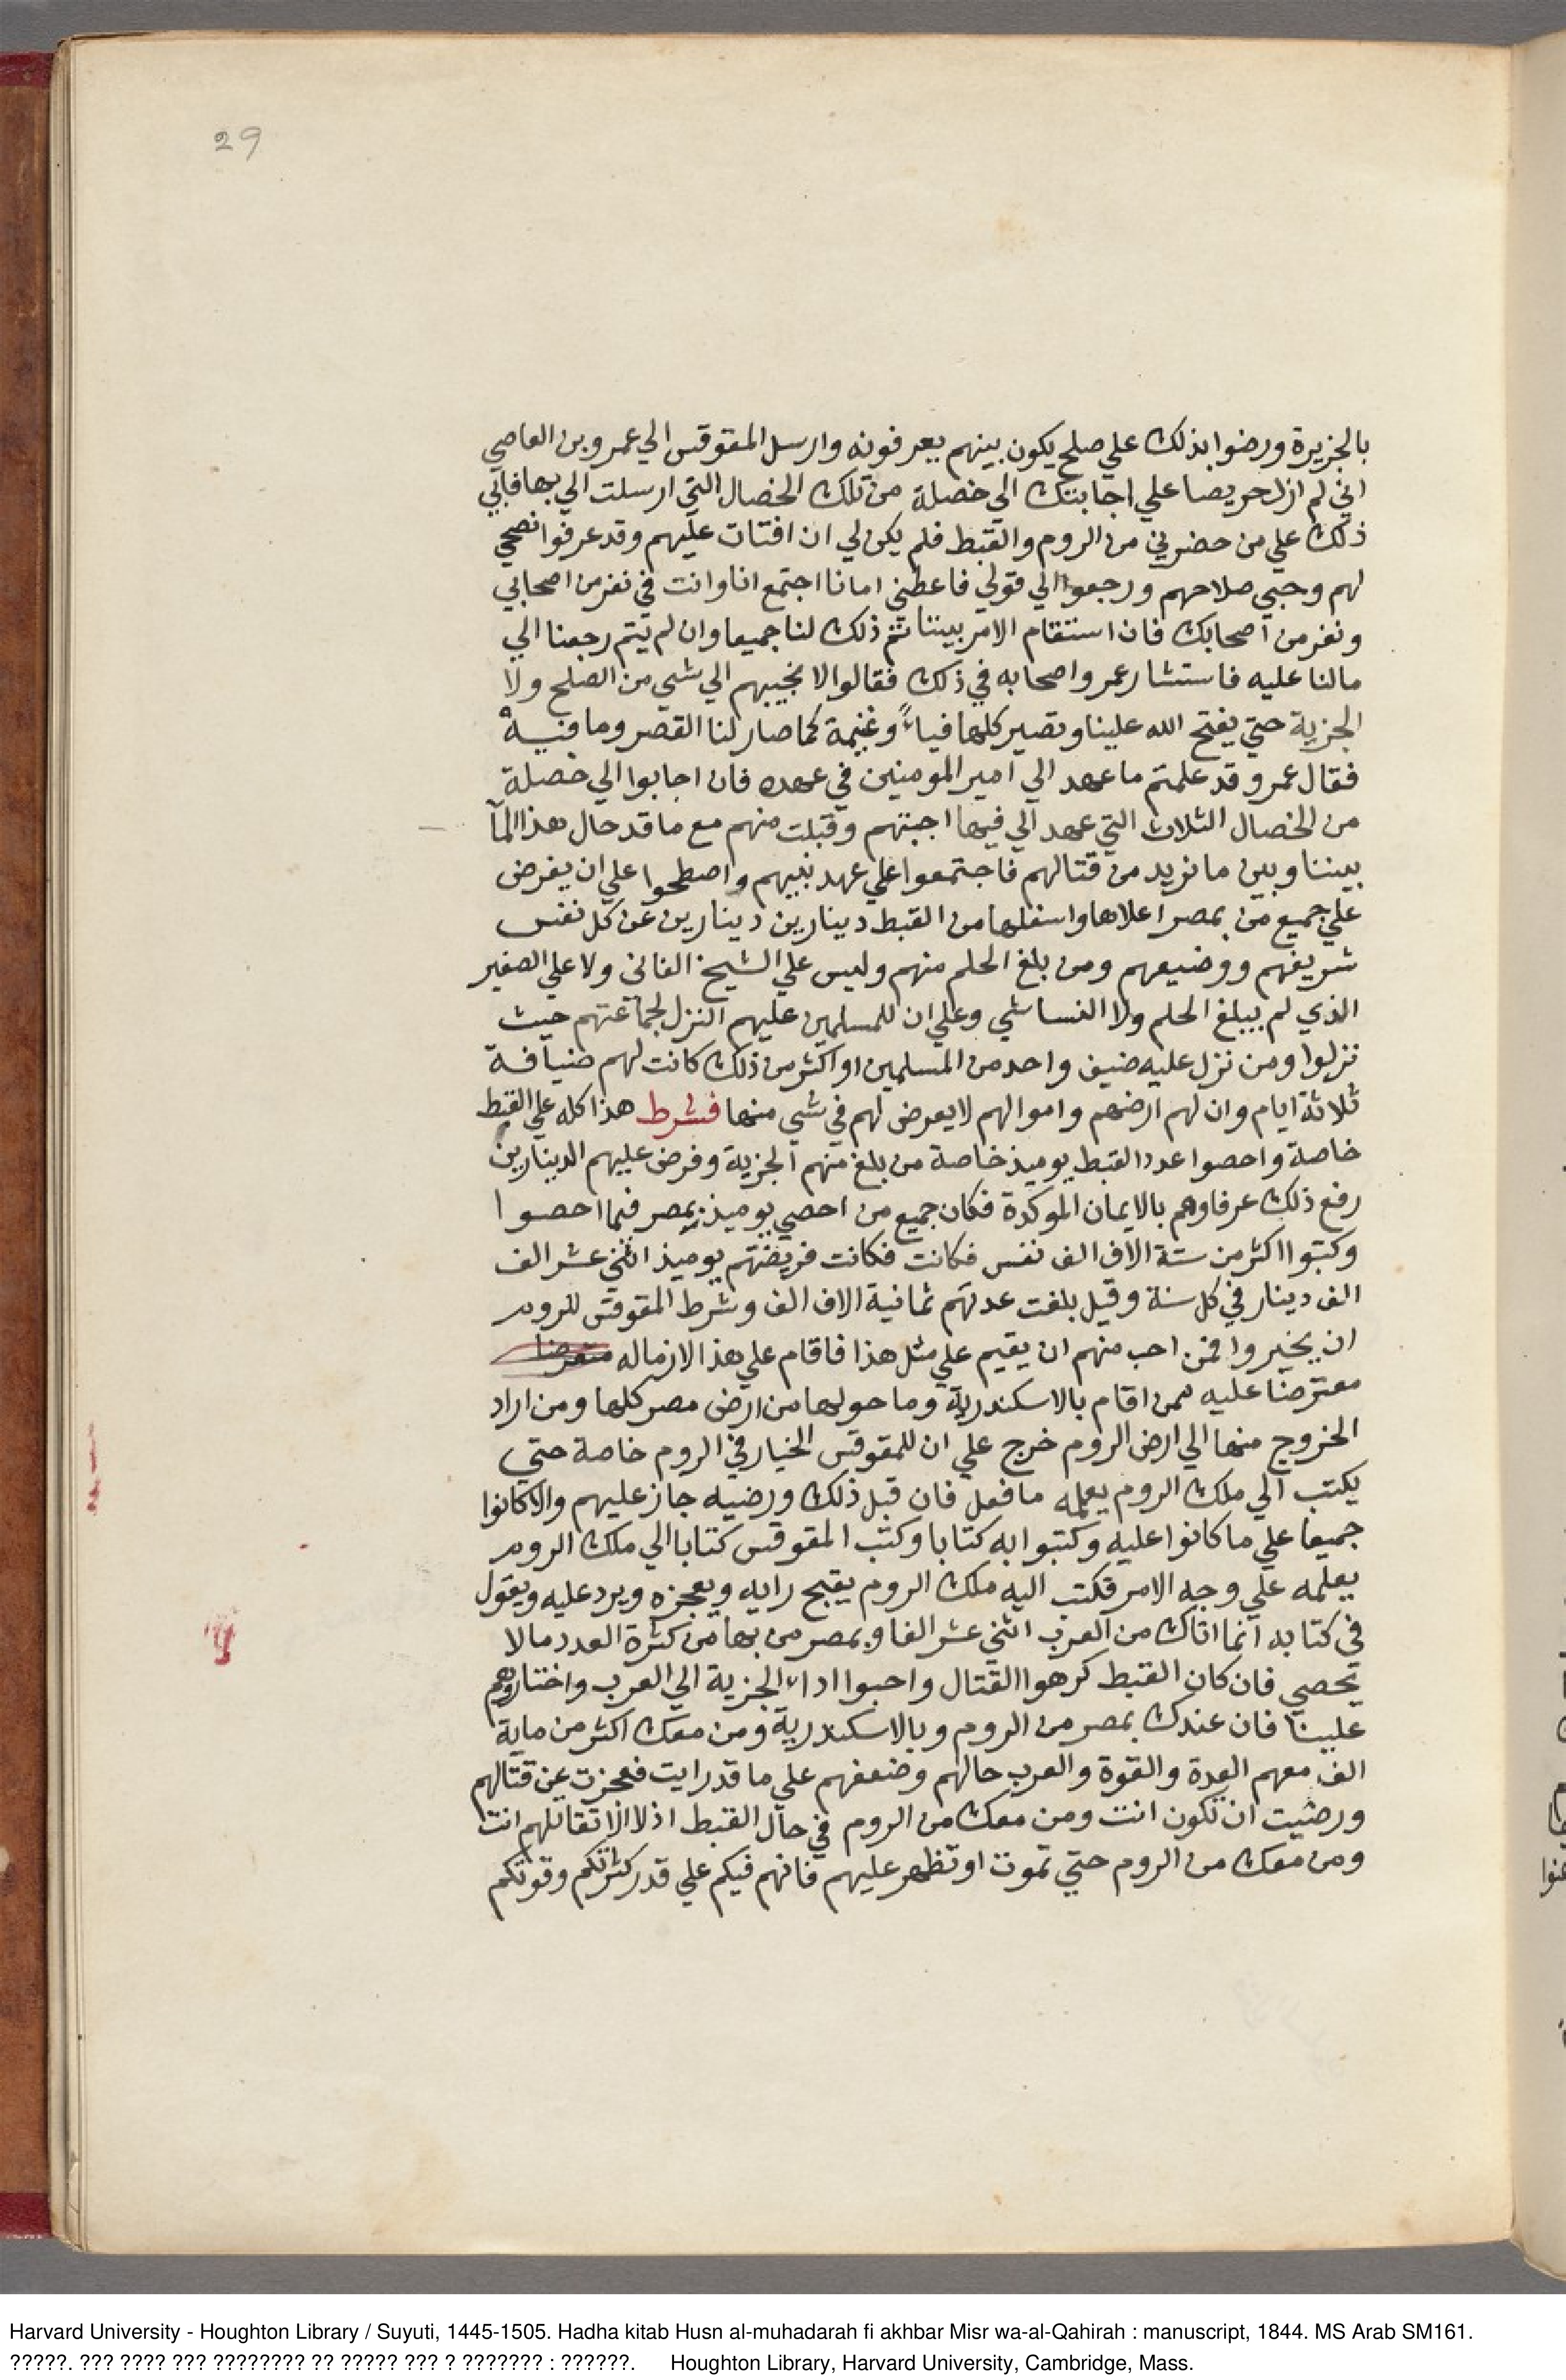 29
بالجزيرة ورضوا بذلك علي صلح يكون بينهم يعرفونه وارسل المقوقس الي عمرو بن العاصي
اني لم ازل حريصا علي اجابتك الي خصلة من تلك الخصال التي ارسلت الي بها فابي
ذلك علي من حضرني من الروم والقبط فلم يكن لي ان افتات عليهم وقد عرفوا نصحي
لهم وحبي صلاحهم ورجعوا الي قولي فاعطني امانا اجتمع انا وانت في نفر من اصحابي
ونفر من اصحابك فان استقام الامر بيننا تم ذلك لنا جميعا وان لم يتم رجعنا الي
مالنا عليه فاستشار عمرو اصحابه في ذلك فقالوا لا نجيبهم الي شي من الصلح ولا
الجزية حتي يفتح الله علينا وتصير كلها فياءً وغنيمة كما صار لنا القصر وما فيه
فقال عمرو قد علمتم ما عهد الي امير المومنين في عهده فان اجابوا الي خصلة
من الخصال الثلاث التي عهد الي فيها اجبتهم وقبلت منهم مع ما قد حال هذا المآ
بيننا وبين ما نريد من قتالهم فاجتمعوا علي عهد بينهم واصطلحوا علي ان يفرض
علي جميع من بمصر اعلاها واسفلها من القبط دينارين دينارين عن كل نفس
شريفهم ووضيعهم ومن بلغ الحلم منهم وليس علي الشيخ الفاني ولا علي الصغير
الذي لم يبلغ الحلم ولا النسا شي وعلي ان للمسلمين عليهم النزل لجماعتهم حيث
نزلوا ومن نزل عليه ضيف واحد من المسلمين او اكثر من ذلك كانت لهم ضيافة
ثلاثة ايام وان لهم ارضهم واموالهم لا يعرض لهم في شي منها فشرط هذا كله علي القبط
خاصة واحصوا عدد القبط يوميذ خاصة من بلغ منهم الجزية وفرض عليهم الدينارين
رفع ذلك عرفاوهم بالايمان الموكدة فكان جميع من احصي يوميذ بمصر فيما احصوا
وكتبوا اكثر من ستة الاف الف نفس فكانت فكانت فريضتهم يوميذ اثني عشر الف
الف دينار في كل سنة وقيل بلغت عدتهم ثمانية الاف الف وشرط المقوقس للروم
ان يخيروا فمن احب منهم ان يقيم علي مثل هذا فاقام علي هذا لازما له
معترضا عليه ممن اقام بالاسكندرية وما حولها من ارض مصر كلها ومن اراد
الخروج منها الي ارض الروم خرج علي ان للمقوقس الخيار في الروم خاصة حتي
يكتب الي ملك الروم يعلمه ما فعل فان قبل ذلك ورضيه جاز عليهم والا كانوا
جميعا علي ما كانوا عليه وكتبوا به كتابا وكتب المقوقس كتابا الي ملك الروم
يعلمه علي وجه الامر فكتب اليه ملك الروم يقبح رايه ويعجزه ويرد عليه ويقول
في كتابه انما اتاك من العرب اثني عشر الفا وبمصر من بها من كثرة العدد مالا
يحصي فان كان القبط كرهوا القتال واحبوا اداء الجزية الي العرب واختاروهم
علينا فان عندك بمصر من الروم وبالاسكندرية ومن معك اكثر من ماية
الف معهم العدة والقوة والعرب حالهم وضعفهم علي ما قد رايت فعجزت عن قتالهم
ورضيت ان تكون انت ومن معك من الروم في حال القبط اذلا الا تقاتلهم انت
ومن معك من الروم حتي تموت او تظهر عليهم فانهم فيكم علي قدر كثرتكم وقوتكم
Harvard University - Houghton Library / Suyuti, 1445-1505. Hadha kitab Husn al-muhadarah fi akhbar Misr wa-al-Qahirah : manuscript, 1844. MS Arab SM161.
?????. ??? ???? ??? ???????? ?? ????? ??? ? ??????? : ??????. Houghton Library, Harvard University, Cambridge, Mass.